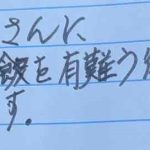 さんに
飯を有難う
す。